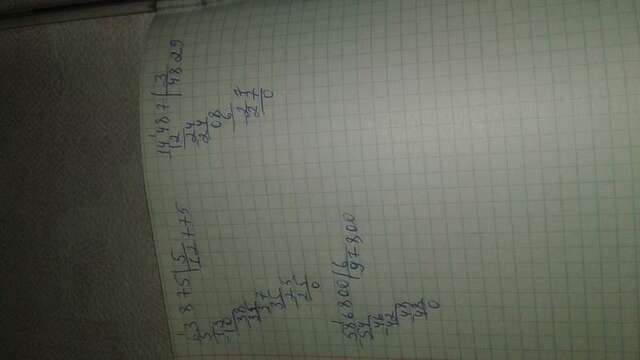 63875|5
5 12775
13
10
38
35
37
35
25
25
0
14487|3
12 4829
24
24
08
6
27
27
0
586800|6
54 97800
46
42
48
48
0